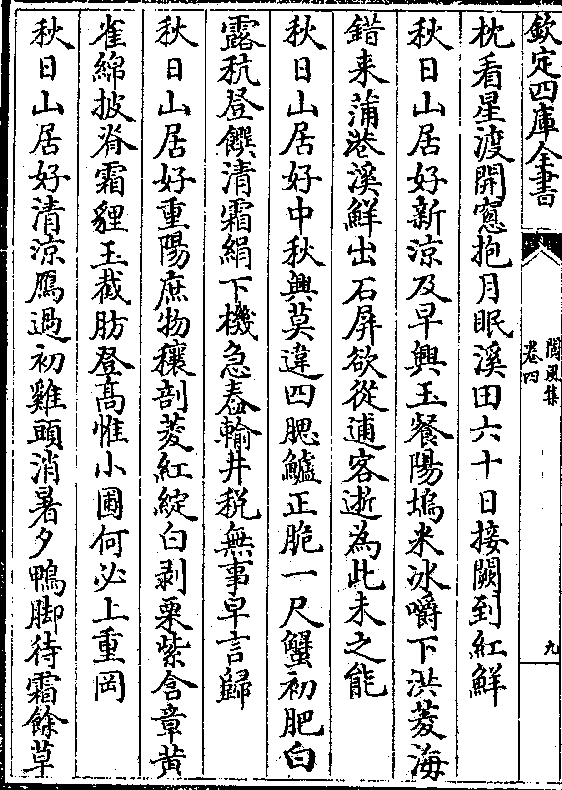 欽定四庫全書
閬風集
卷四
九
枕看星渡開窻抱月眠溪田六十日接闕到紅鮮
秋日山居好新凉及早興玉餐陽塢米冰嚼下洪菱海
錯来蒲港溪鮮出石屏欲從逋客逝為此未之能
秋日山居好中秋興莫違四腮鱸正脆一尺蟹初肥白
露秔登饌清霜絹下機急舂輸井税無事早言歸
秋日山居好重陽庶物穰剖菱紅綻白剥栗紫含章黄
雀綿披脊霜貍玉截肪登髙惟小圃何必上重岡
秋日山居好清凉鴈過初雞頭消暑夕鴨脚待霜餘草